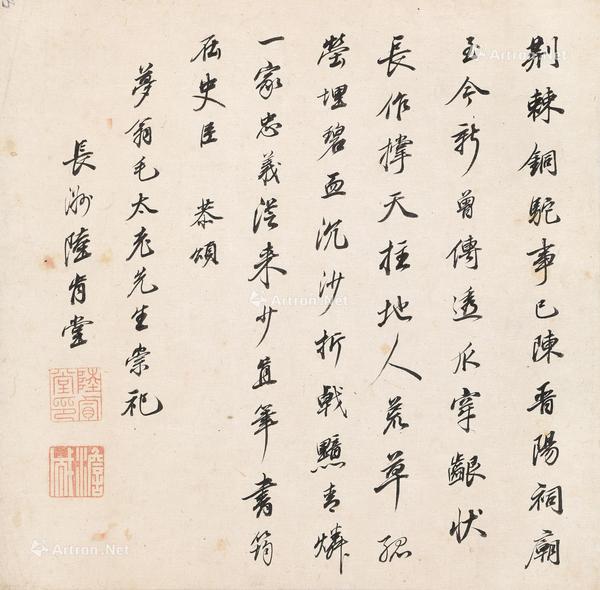 荆棘銅駝事已陳晋陽祠廟
至今新曾傳透爪穿齦狀
長作撑天拄地人荒草孤
塋埋碧血沉沙折戟黯青燐
一家忠義從来少直筆書筠
史臣 恭頌
夢翁毛太老先生崇祀
長洲陸肯堂
陸肯堂印
Artron.Net
Artron.Net
Artron.Net
Artron.Net